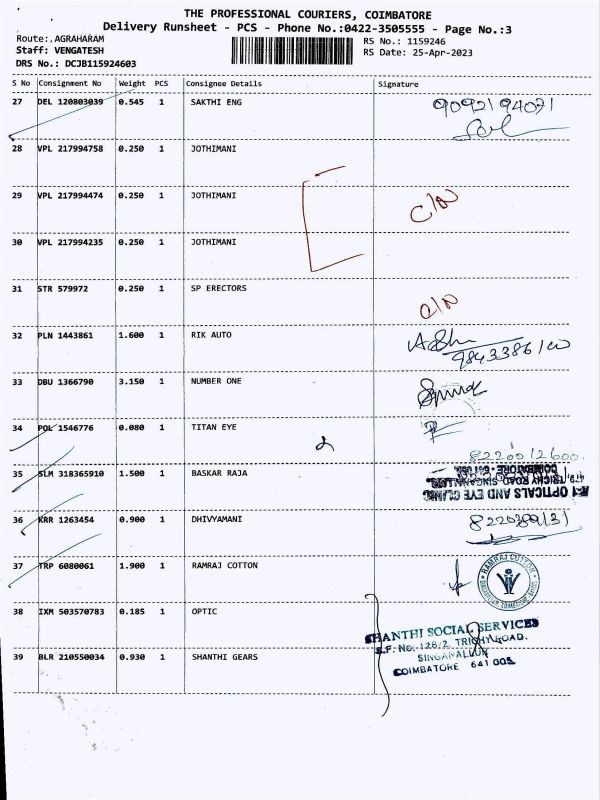 THE PROFESSIONAL COURIERS, COIMBATORE
Delivery Runsheet - PCS - Phone No.:0422-3505555 - Page No.:3
Route:.AGRAHARAM
Staff: VENGATESH
DRS No.: DCJB115924603
RS No.: 1159246
RS Date: 25-Apr-2023
S No Consignment No Weight PCS Consignee Details Signature
27 DEL 120803039 0.545 1 SAKTHI ENG 9092194071
28 VPL 217994758 0.250 1 JOTHIMANI
29 VPL 217994474 0.250 1 JOTHIMANI C/N
30 VPL 217994235 0.250 1 JOTHIMANI
31 STR 579972 0.250 1 SP ERECTORS C/N
32 PLN 1443861 1.600 1 RIK AUTO
33 DBU 1366790 3.150 1 NUMBER ONE
34 POL 1546776 0.080 1 TITAN EYE
2
35 SLM 318365910 1.500 1 BASKAR RAJA
A-1 OPTICALS AND EYE CLINIC
479, TRICHY ROAD, SINGANALLUR,
36 KRR 1263454 0.900 1 DHIVYAMANI
37 TRP 6080061 1.900 1 RAMRAJ COTTON
RAMRAJ COTTON
38 IXM 503570783 0.185 1 OPTIC
SHANTHI SOCIAL SERVICES
S.F. No:-126/2, TRICHY ROAD.
SINGANALLUR
COIMBATORE 641 005
39 BLR 210550034 0.930 1 SHANTHI GEARS